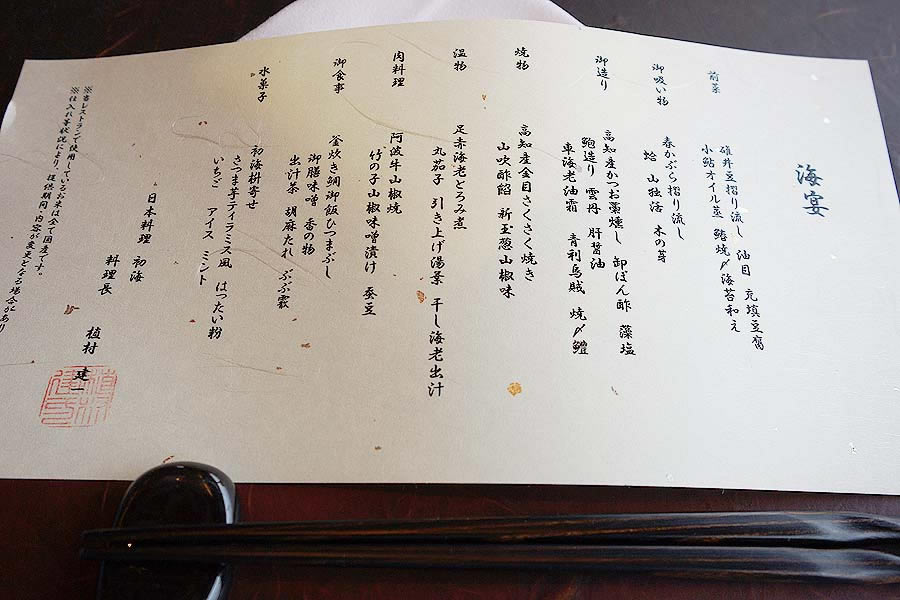 海宴
前菜
碓井豆摺り流し 油目 充填豆腐
小鮎オイル蒸 鰆焼〆海苔和え
御吸い物
春かぶら摺り流し
蛤 山独活 木の芽
御造り
高知産かつお藁燻し 卸ぽん酢 藻塩
鮑造り 雲丹 肝醤油
車海老油霜 青利烏賊 焼〆鱧
焼物
高知産金目さくさく焼き
山吹酢餡 新玉葱山椒味
温物
足赤海老とろみ煮
丸茄子 引き上げ湯葉 干し海老出汁
肉料理
阿波牛山椒焼
竹の子山椒味噌漬け 蚕豆
御食事
釜炊き鯛御飯ひつまぶし
御膳味噌 香の物
出汁茶 胡麻たれ ぶぶ霰
水菓子
初海枡寄せ
さつま芋ティラミス風 はったい粉
いちご アイス ミント
日本料理 初海
料理長 植村 建一
※当レストランで使用しているお米は全て国産です。
※仕入れ等状況により、提供期間・内容が変更となる場合があり